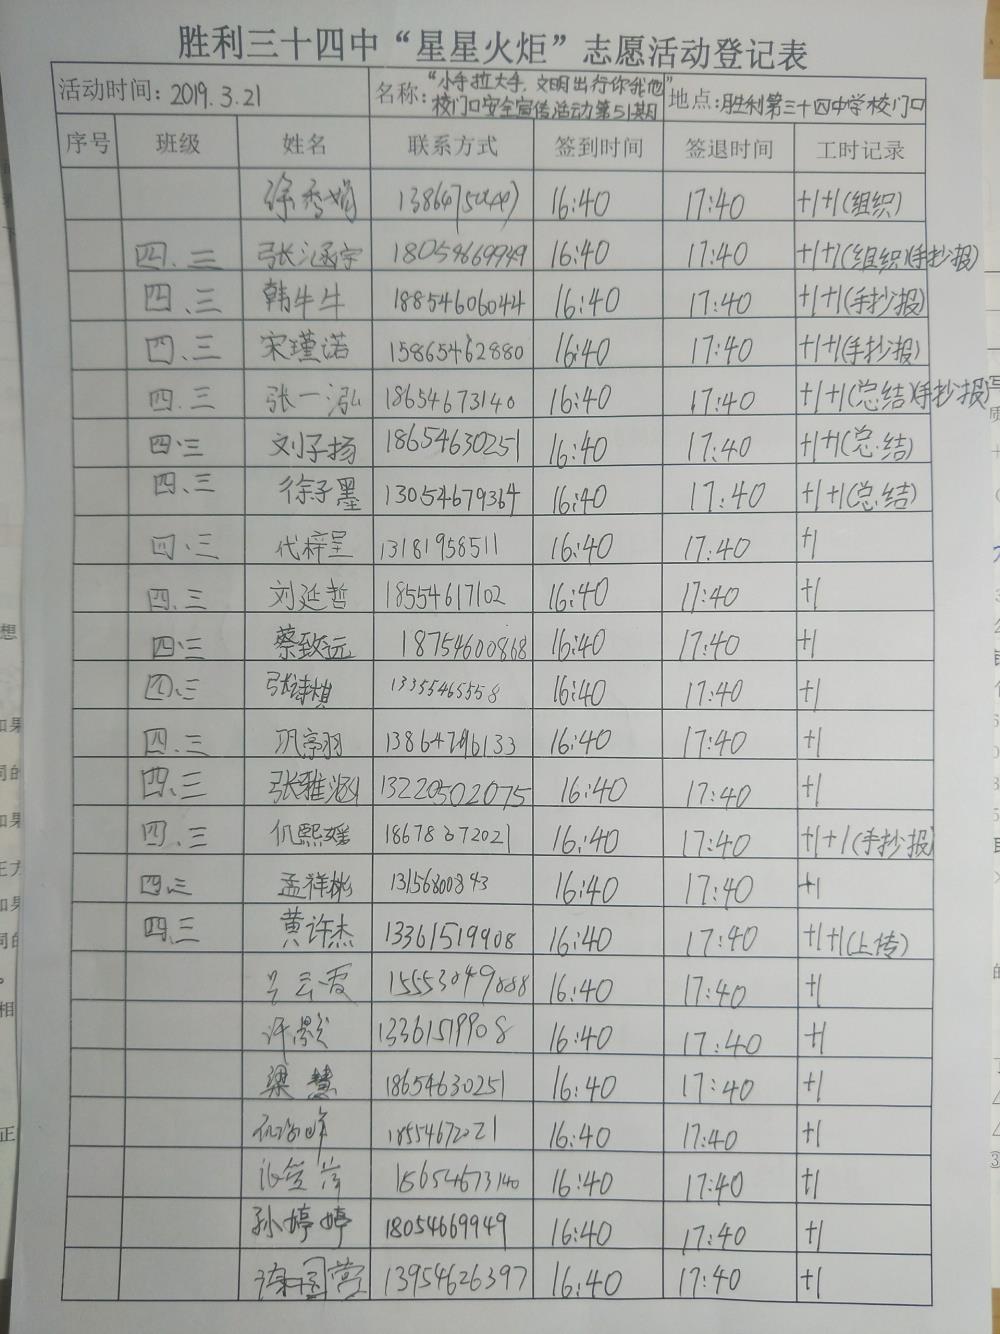 胜利三十四中“星星火炬”志愿活动登记表
活动时间：2019.3.21 名称：“小手拉大手，文明出行你我他” 校门口安全宣传活动第51期 地点：胜利第三十四中学校门口
序号 班级 姓名 联系方式 签到时间 签退时间 工时记录
徐秀娟 16:40 17:40 +1+1(组织)
四、三 张涵宇 18054669949 16:40 17:40 +1+1(组织)(手抄报)
四、三 韩牛牛 18854606044 16:40 17:40 +1+1(手抄报)
四、三 宋瑾诺 15865462880 16:40 17:40 +1+1(手抄报)
四、三 张一泓 18654673140 16:40 17:40 +1+1(总结)(手抄报)
四、三 刘子扬 18654630251 16:40 17:40 +1+1(总结)
四、三 徐子墨 13054679364 16:40 17:40 +1+1(总结)
四、三 代梓呈 13181958511 16:40 17:40 +1
四、三 刘延哲 18554617102 16:40 17:40 +1
四、三 蔡致远 18754600868 16:40 17:40 +1
四、三 张诗棋 13355465558 16:40 17:40 +1
四、三 巩亭羽 16:40 17:40 +1
四、三 张雅涵 13220502075 16:40 17:40 +1
四、三 仉熙媛 18678672021 16:40 17:40 +1+1(手抄报)
四、三 孟祥彬 16:40 17:40 +1
四、三 黄许杰 13361519908 16:40 17:40 +1+1(上传)
15553049888 16:40 17:40 +1
13361519908 16:40 17:40 +1
梁慧 18654630251 16:40 17:40 +1
16:40 17:40 +1
18654673140 16:40 17:40 +1
孙婷婷 18054669949 16:40 17:40 +1
13954626397 16:40 17:40 +1